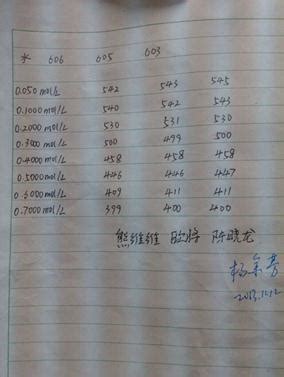 水 606 605 603
0.050 mol/L 542 543 545
0.1000 mol/L 540 542 543
0.2000 mol/L 530 531 530
0.3000 mol/L 500 499 500
0.4000 mol/L 458 458 458
0.5000 mol/L 446 446 447
0.6000 mol/L 409 411 411
0.7000 mol/L 399 400 400
熊维维 陈晓龙
2013.11.12